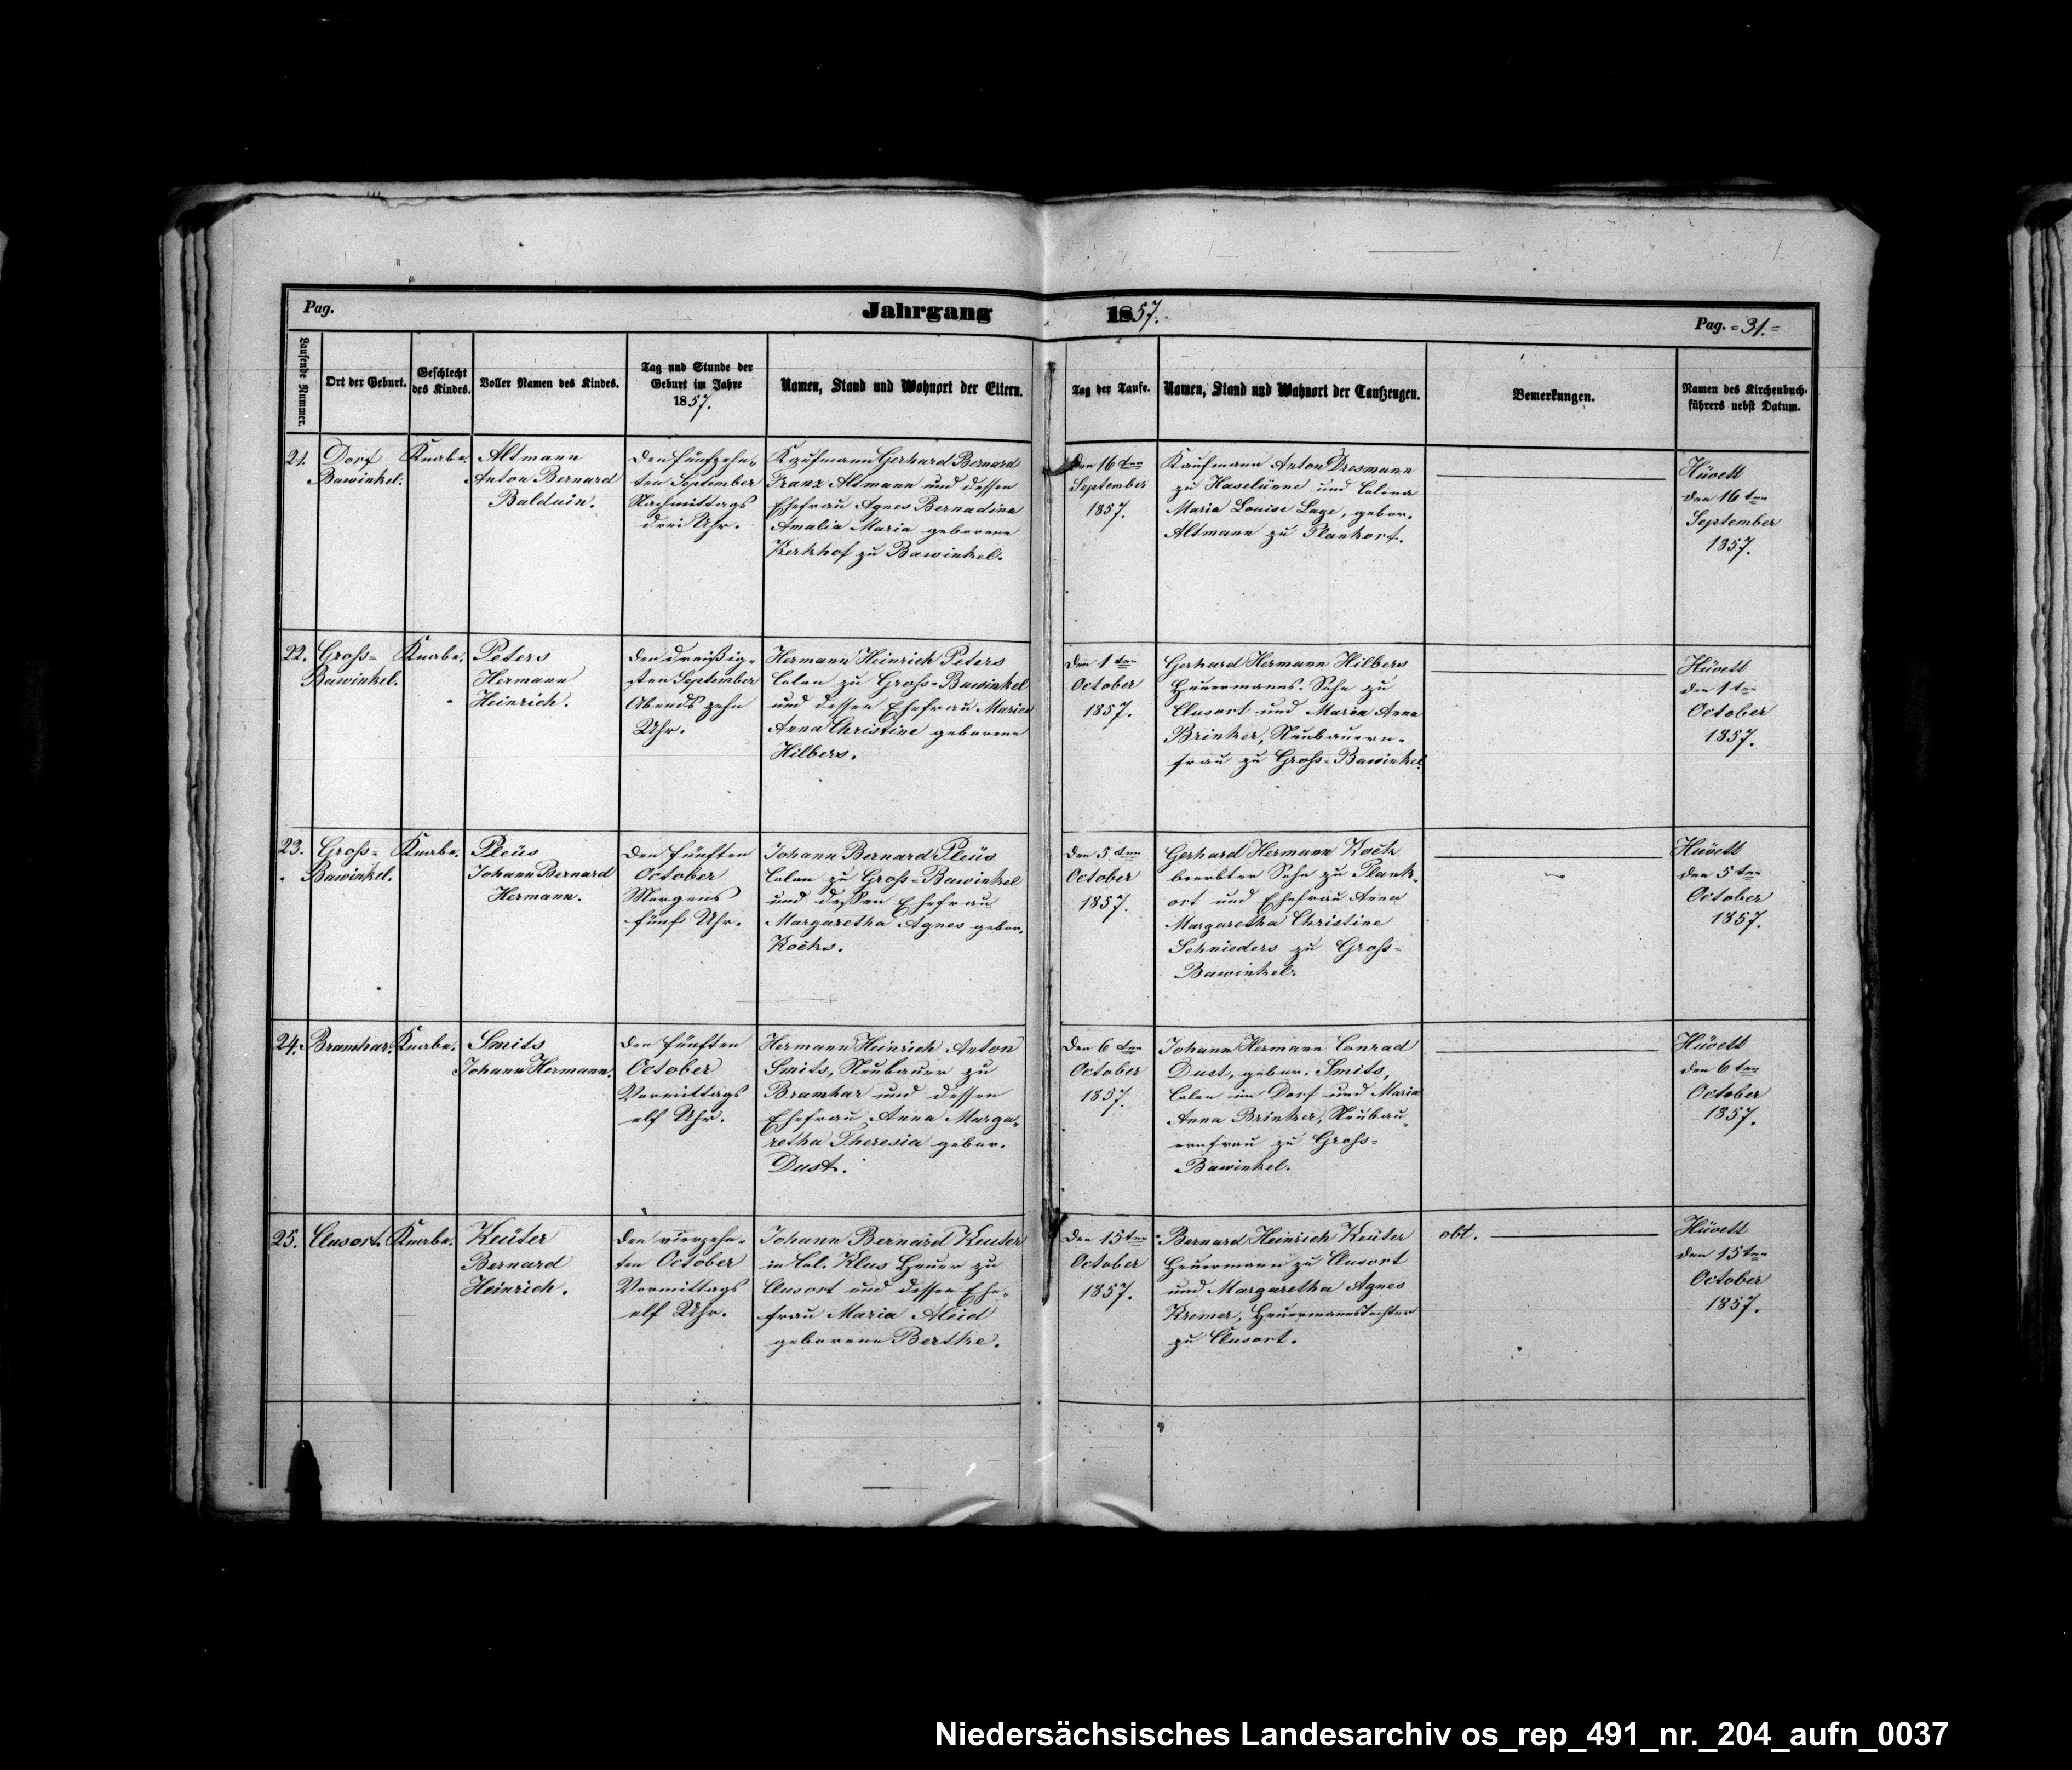 Pag.
Jahrgang 1857.
Pag. = 31. =
Laufende Nummer.
Ort der Geburt.
Geschlecht
des Kindes.
Voller Namen des Kindes.
Tag und Stunde der
Geburt im Jahre
1857.
Namen, Stand und Wohnort der Eltern.
Tag der Taufe.
Namen, Stand und Wohnort der Taufzeugen.
Bemerkungen.
Namen des Kirchenbuch-
führers nebst Datum.
21.
Dorf
Bawinkel.
Knabe.
Altmann
Anton Bernard
Balduin.
Den fünfzehn-
ten September
Nachmittags
drei Uhr.
Kaufmann Gerhard Bernard
Franz Altmann und dessen
Ehefrau Agnes Bernadina
Amalia Maria geborene
Kerkhof zu Bawinkel.
Den 16ten
September
1857.
Kaufmann Anton Dresmann
zu Haselünne und Colona
Maria Louise Lage, gebor.
Altmann zu Plankorf.
Hüvett
den 16ten
September
1857.
22.
Gross-
Bawinkel.
Knabe.
Peters
Hermann
Heinrich.
Den dreißig-
sten September
Abends zehn
Uhr.
Hermann Heinrich Peters
Colon zu Gross-Bawinkel
und dessen Ehefrau Maria
Anna Christine geborene
Hilbers.
Den 1ten
October
1857.
Gerhard Hermann Hilbers
Heuermanns-Sohn zu
Clusort und Maria Anna
Brinker, Neubauern-
frau zu Gross-Bawinkel.
Hüvett
den 1ten
October
1857.
23.
Gross-
Bawinkel.
Knabe.
Pleüs
Johann Bernard
Hermann.
Den fünften
October
Morgens
fünf Uhr.
Johann Bernard Pleüs
Colon zu Gross-Bawinkel
und dessen Ehefrau
Margaretha Agnes gebor.
Koeks.
Den 5ten
October
1857.
Gerhard Hermann Koek
beerbter Sohn zu Plank-
ort und Ehefrau Anna
Margaretha Christine
Schnieders zu Gross-
Bawinkel.
Hüvett
den 5ten
October
1857.
24.
Bramhar.
Knabe.
Smits
Johann Hermann.
Den fünften
October
Vormittags
elf Uhr.
Hermann Heinrich Anton
Smits, Neubauer zu
Bramhar und dessen
Ehefrau Anna Marga-
retha Theresia gebor.
Dust.
Den 6ten
October
1857.
Johann Hermann Conrad
Dust, gebor. Smits,
Colon im Dorf und Maria
Anna Brinker, Neubau-
ernfrau zu Gross-
Bawinkel.
Hüvett
den 6ten
October
1857.
25.
Clusort.
Knabe.
Keüter
Bernard
Heinrich.
Den vierzehn-
ten October
Vormittags
elf Uhr.
Johann Bernard Keuter
in Col. Klus Heuer zu
Clusort und dessen Ehe-
frau Maria Aleid
geborene Berthe.
Den 15ten
October
1857.
Bernard Heinrich Keüter
Heuermann zu Clusort
und Margaretha Agnes
Kremer, Heuermannstochter
zu Clusort.
obt.
Hüvett
den 15ten
October
1857.
Niedersächsisches Landesarchiv os_rep_491_nr._204_aufn_0037